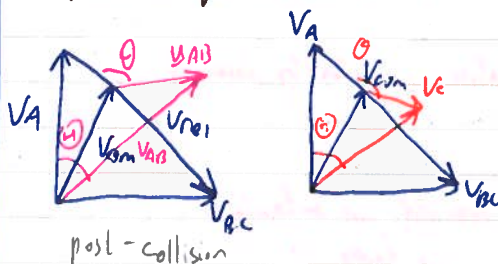 θ
𝓊AB
VA
Θ
Vcom
VAB
Vrel
VBC
post-collision
VA
θ
Vcom
Vc
Θ
VBC